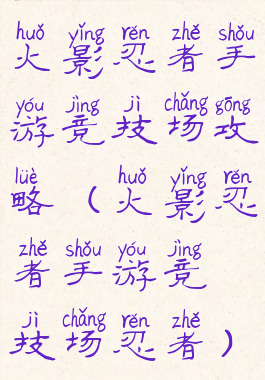 huǒ yǐng rěn zhě shǒu
火影忍者手
yóu jìng jì chǎng gōng
游竞技场攻
lüè huǒ yǐng rěn
略（火影忍
zhě shǒu yóu jìng
者手游竞
jì chǎng rěn zhě
技场忍者）